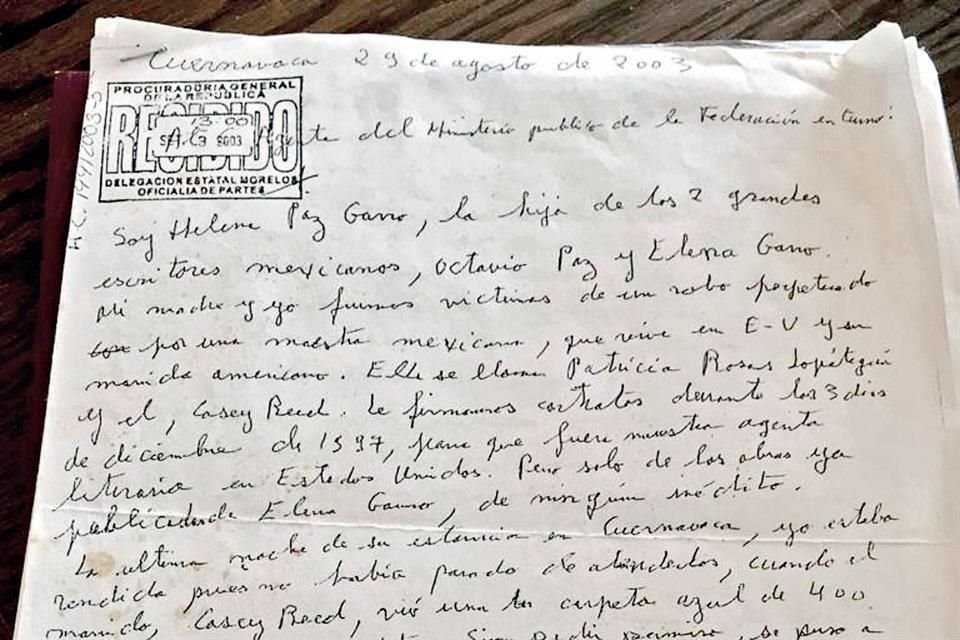 Cuernavaca 29 de agosto de 2003
PROCURADURIA GENERAL
DE LA REPUBLICA
RECIBIDO
13:00
SEP 3 2003
DELEGACION ESTATAL MORELOS
OFICIALIA DE PARTES
A.C. 144/2003-S
Al C. Agente del Ministerio publico de la Federación en turno:
Soy Helena Paz Garro, la hija de los 2 grandes
escritores mexicanos, Octavio Paz y Elena Garro.
Mi madre y yo fuimos victimas de un robo perpetrado
por una maestra mexicana, que vive en E-V y su
marido americano. Ella se llama Patricia Rosas Lopátegui
y el, Casey Reed. Le firmamos contratos durante los 3 dias
de diciembre de 1997, para que fuera nuestra agenta
literaria en Estados Unidos. Pero solo de las obras ya
publicadas de Elena Garro, de ningún inédito.
La ultima noche de su estancia en Cuernavaca, yo estaba
rendida pues no habia parado de atenderlos, cuando el
marido, Casey Reed, vió una carpeta azul de 400
se puso a